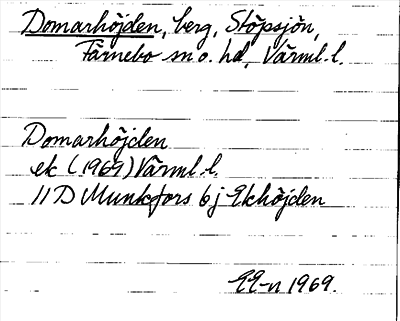 Domarhöjden, berg, Stöpsjön,
Färnebo sn o. hd, Värml. l.
Domarhöjden
ek (1969) Värml. l.
11D Munkfors 6j Ekhöjden
1969.